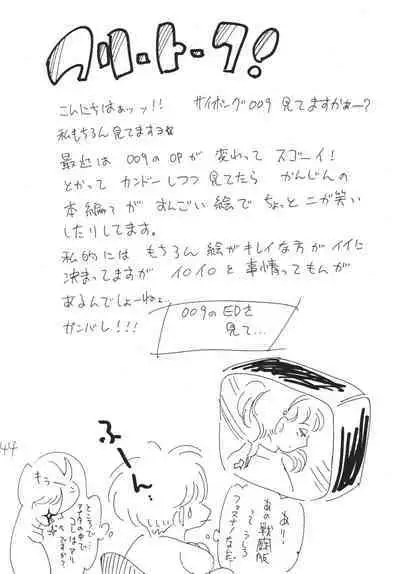 フリートーク！
こんにちはぁッッ!! サイボーグ009 見てますかぁー?
私もちろん見てますヨォ
最近は 009のOPが 変わって スゴーイ!
とかって カンドーしつつ 見てたら かんじんの
本編が すんごい絵で ちょっと ニガ笑い
したりしてます。
私的には もちろん 絵がキレイな方が イイに
決まってますが イロイロと 事情ってもんが
あるんでしょーねぇ
ガンバレ!!!
009のEDを
見て…
あり!
あの戦闘服
って うしろ
ファスナーなんだ
ふーん.
キラーン
ところで…
アナタの中で
コレはアリ
ですか?
44